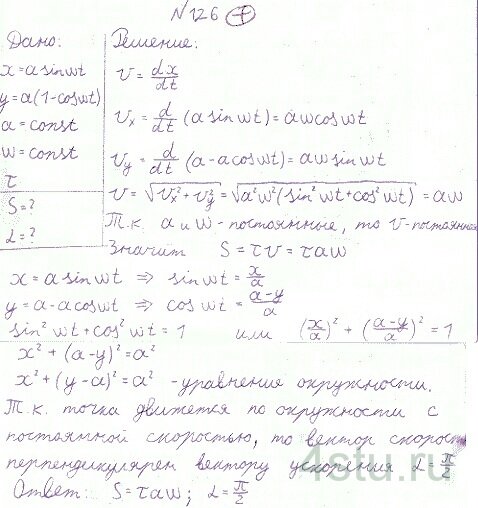 N 126 +
Дано:
x = a sin wt
y = a(1-cos wt)
a = const
w = const
τ
S = ?
α = ?
Решение:
v = dx/dt
v_x = d/dt (a sin wt) = aw cos wt
v_y = d/dt (a - a cos wt) = aw sin wt
v = √(v_x² + v_y²) = √(a²w²(sin² wt + cos² wt)) = aw
Т.к. a и w - постоянные, то v - постоянная
Значит S = τv = τaw
x = a sin wt ⇒ sin wt = x/a
y = a - a cos wt ⇒ cos wt = (a-y)/a
sin² wt + cos² wt = 1 или (x/a)² + ((a-y)/a)² = 1
x² + (a-y)² = a²
x² + (y-a)² = a² - уравнение окружности.
Т.к. точка движется по окружности с
постоянной скоростью, то вектор скорост
перпендикулярен вектору ускорения α = π/2
Ответ: S = τaw; α = π/2
4stu.ru